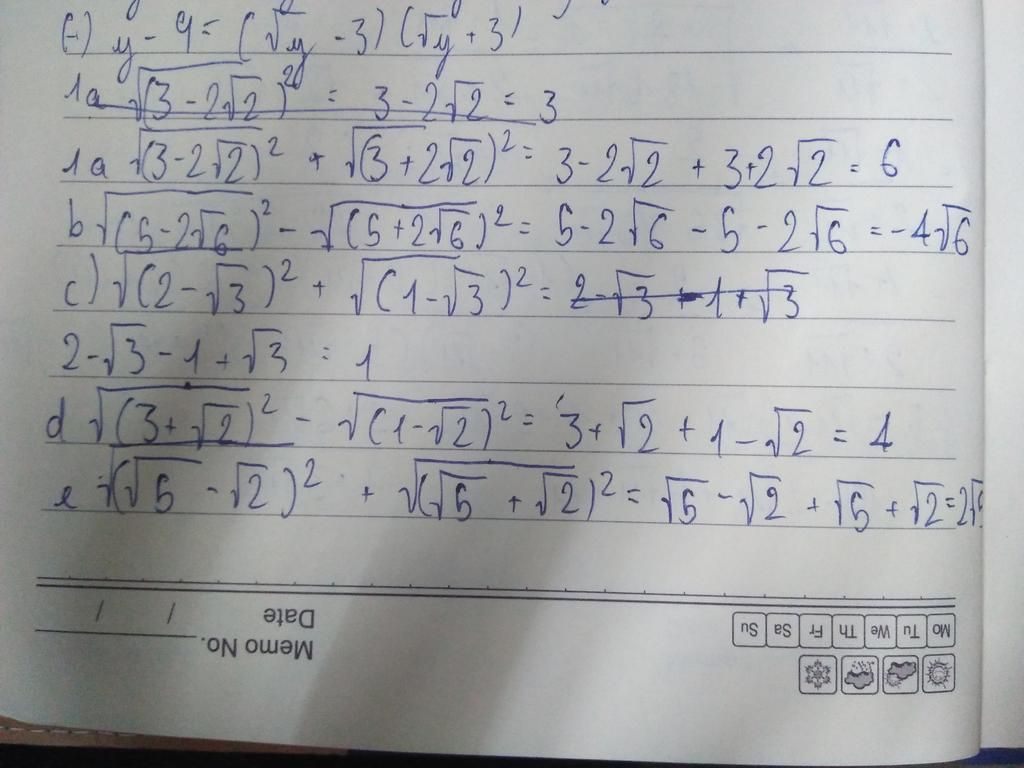 (-) y - 9 = (√y - 3)(√y + 3)
1a √(3 - 2√2)² = 3 - 2√2 = 3
1a √(3 - 2√2)² + √(3 + 2√2)² = 3 - 2√2 + 3 + 2√2 = 6
b √(5 - 2√6)² - √(5 + 2√6)² = 5 - 2√6 - 5 - 2√6 = -4√6
c) √(2 - √3)² + √(1 - √3)² = 2 - √3 - 1 + √3
2 - √3 - 1 + √3 = 1
d √(3 + √2)² - √(1 - √2)² = 3 + √2 + 1 - √2 = 4
e √(√5 - √2)² + √(√5 + √2)² = √5 - √2 + √5 + √2 = 2√5
Mo Tu We Th Fr Sa Su
Memo No.
Date / /